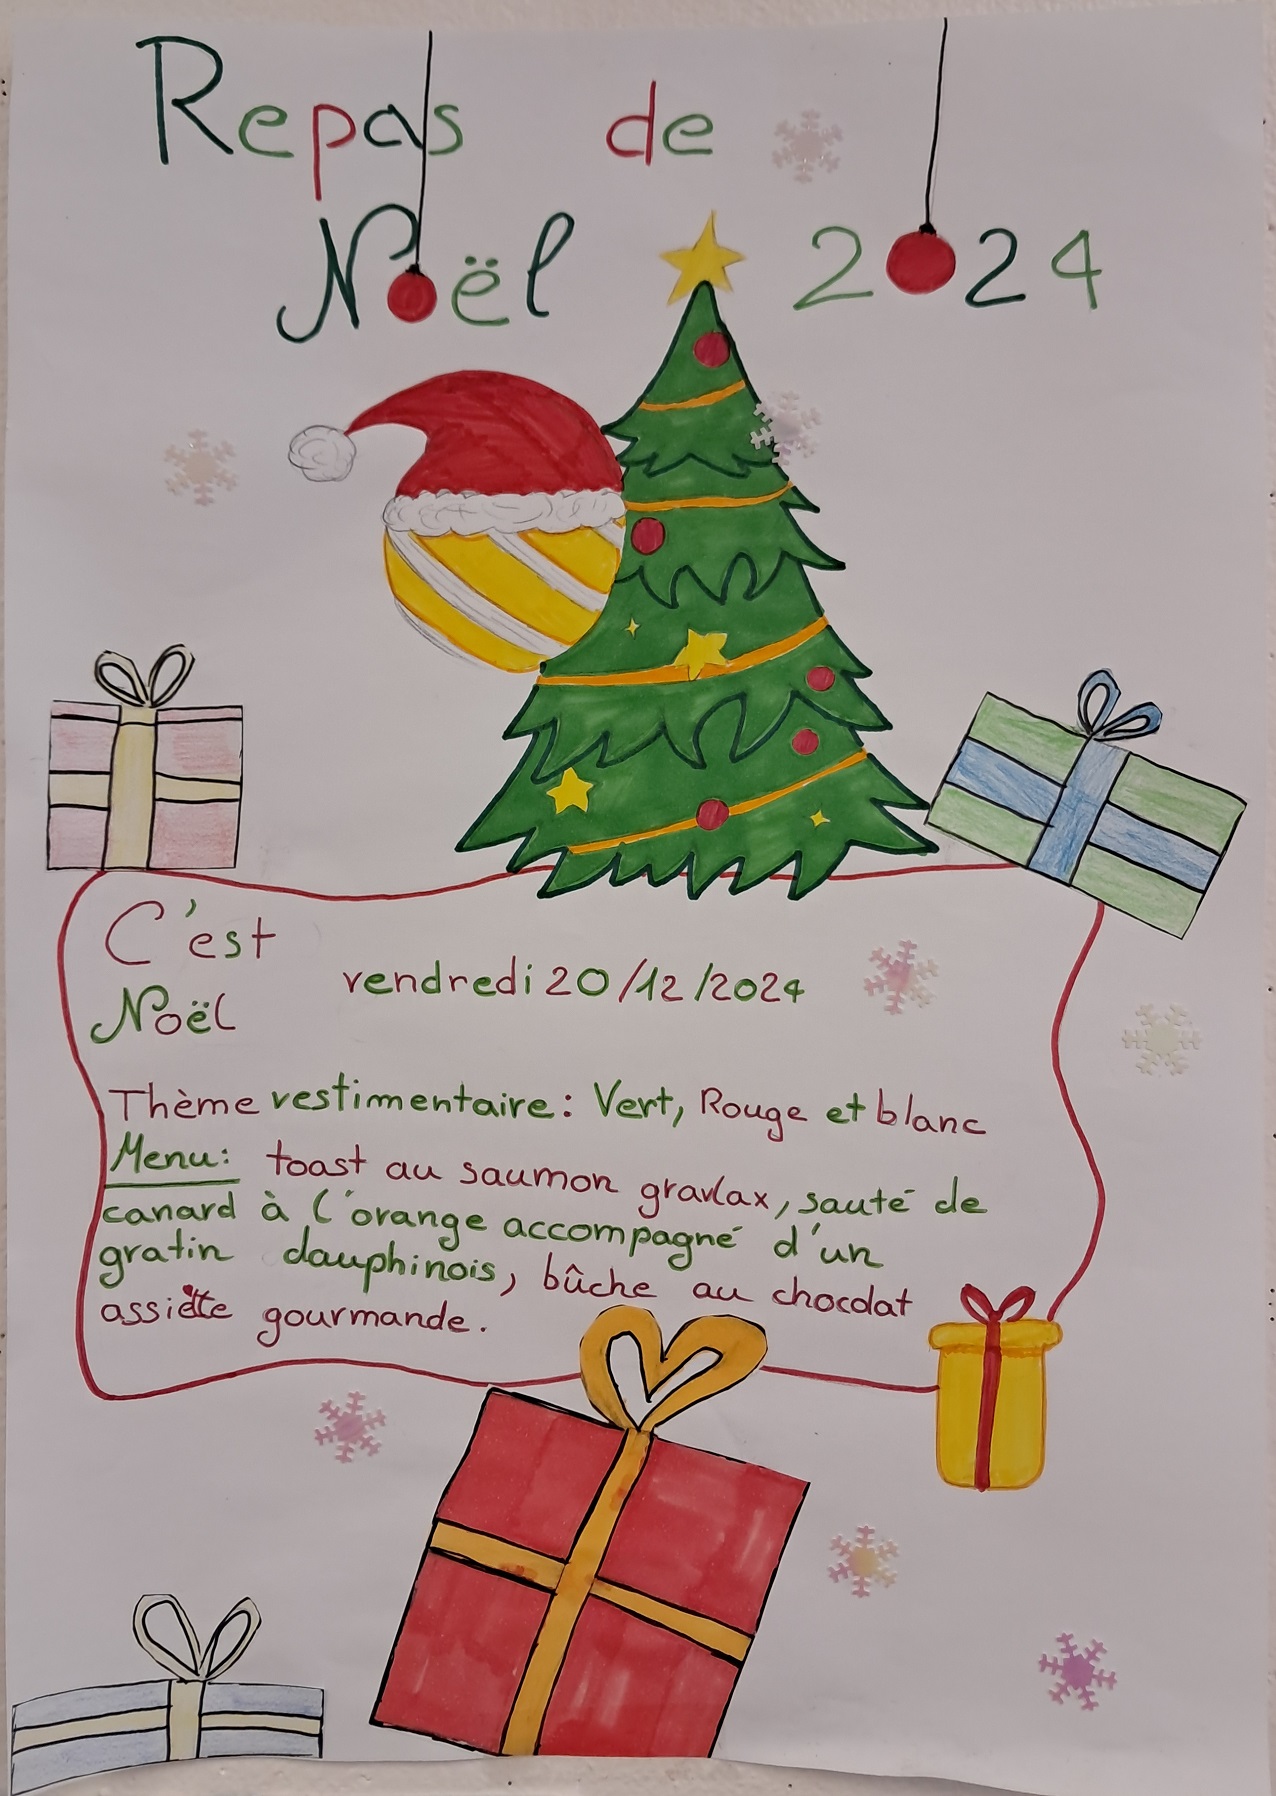 Repas de
Noël 2024
C'est
Noël
vendredi 20/12/2024
Thème vestimentaire : Vert, Rouge et blanc
Menu: toast au saumon gravlax, sauté de
canard à l'orange accompagné d'un
gratin dauphinois, bûche au chocolat
assiette gourmande.